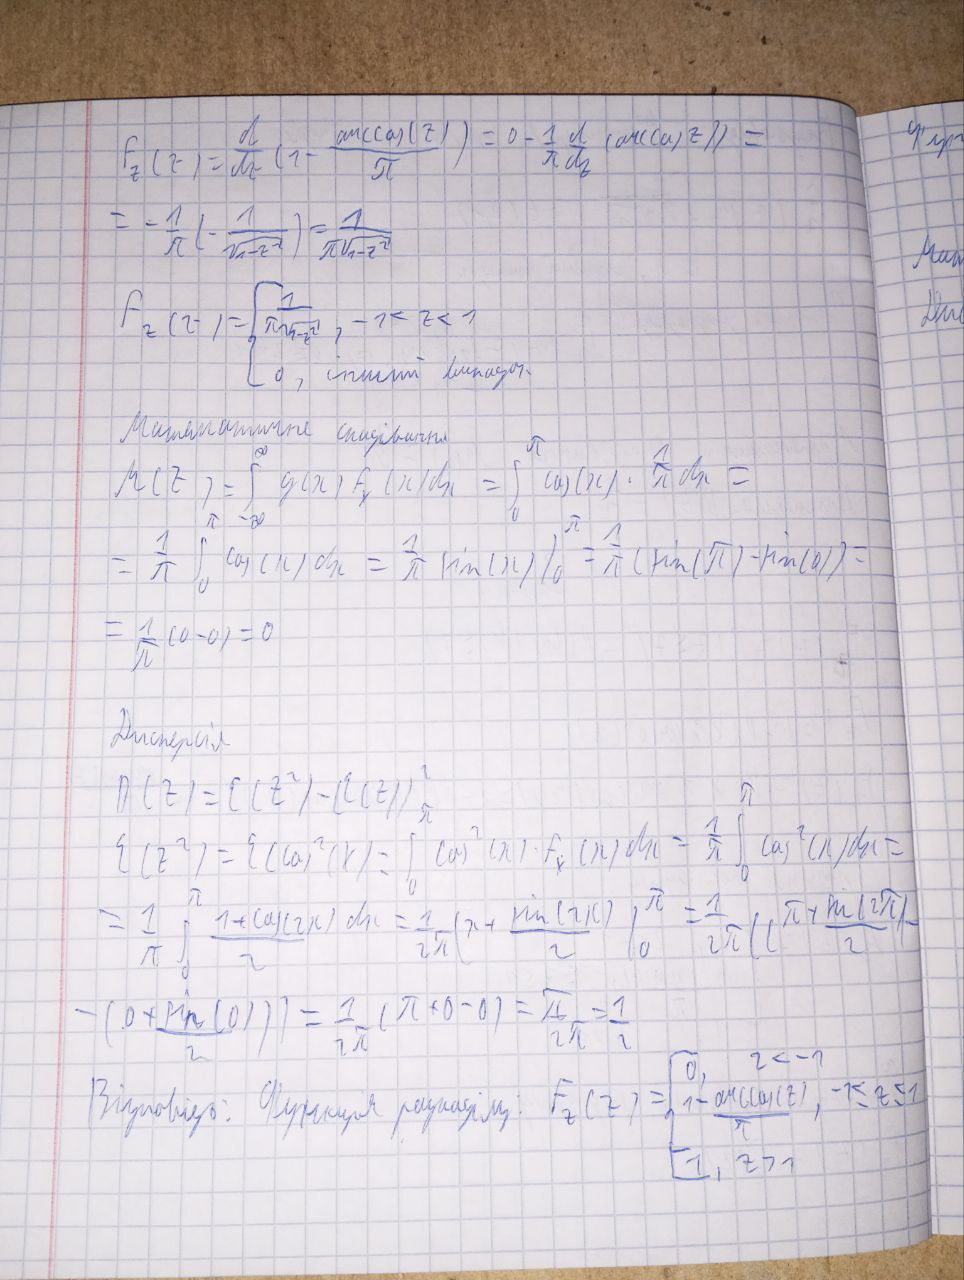 f_z(z) = d/dz (1 - arccos(z)/π) = 0 - 1/π d/dz (arccos z)) =
= - 1/π (- 1/√1-z²) = 1/π√1-z²
f_z(z) = { 1/π√1-z², -1 < z < 1
0, інший випадок.
Математичне сподівання
M(Z) = ∫_{-∞}^{∞} g(x) f_x(x) dx = ∫_0^π cos(x) · 1/π dx =
= 1/π ∫_0^π cos(x) dx = 1/π sin(x) |_0^π = 1/π (sin(π) - sin(0)) =
= 1/π (0-0) = 0
Дисперсія
D(Z) = E(Z²) - (E(Z))²
E(Z²) = E(cos²(X) = ∫_0^π cos²(x) · f_x(x) dx = 1/π ∫_0^π cos²(x) dx =
= 1/π ∫_0^π 1+cos(2x)/2 dx = 1/2π (x + sin(2x)/2 |_0^π = 1/2π ((π + sin(2π)/2) -
- (0 + sin(0)/2)) = 1/2π (π + 0 - 0) = π/2π = 1/2
Відповідь: Функція розподілу: F_z(z) = { 0, z < -1
1 - arccos(z)/π, -1 ≤ z ≤ 1
1, z > 1
Дис